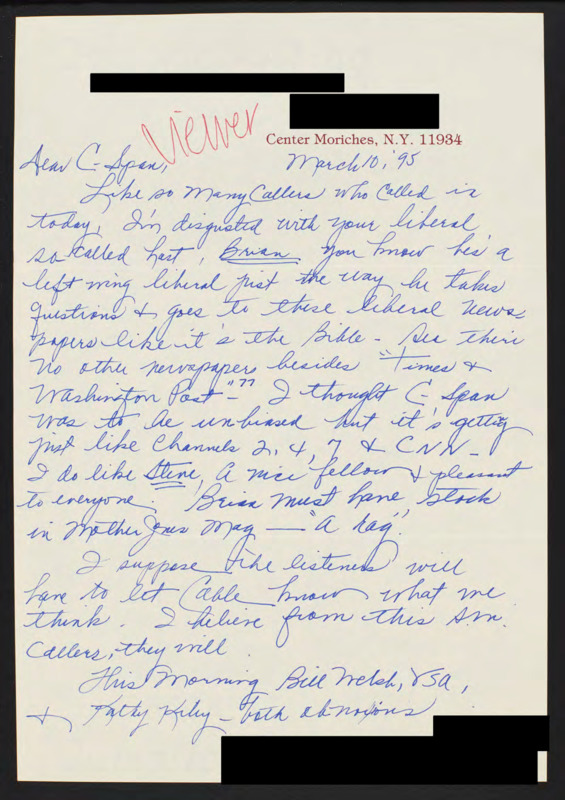 Viewer
Center Moriches, N.Y. 11934
March 10, '95
Dear C-Span,
Like so many callers who called in
today, I'm disgusted with your liberal
so called host, Brian you know he's a
left wing liberal just the way he takes
questions & goes to these liberal news
papers like it's the Bible - Are there
no other newspapers besides "Times &
Washington Post" -?? I thought C-Span
was to be unbiased but it's getting
just like Channels 2, 4, 7 & CNN -
I do like Steve, a nice fellow & pleasant
to everyone. Brian must have stock
in Mother Jones Mag — "A rag".
I suppose the listeners will
have to let Cable know what we
think. I believe from this A.m.
callers, they will.
This Morning Bill Welsh, USA,
& Kathy Kiely - both obnoxious